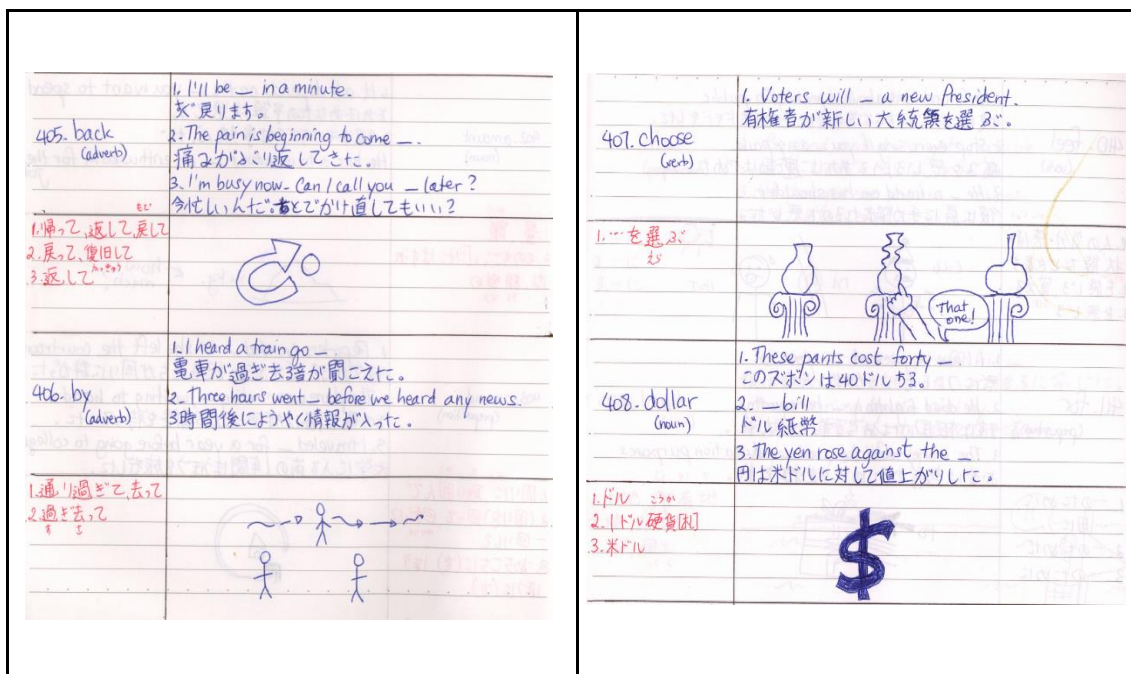 405. back
(adverb)
1. I'll be _ in a minute.
戻ります。
2. The pain is beginning to come _.
痛みがぶり返してきた。
3. I'm busy now. Can I call you _ later?
今忙しいんだ。あとでかけ直してもいい?
1. 帰って,返して,戻して
もど
2. 戻って,復旧して
ふっきゅう
3. 返して
406. by
(adverb)
1. I heard a train go _.
電車が過ぎ去る音が聞こえた。
2. Three hours went _ before we heard any news.
3時間後にようやく情報が入った。
1. 通り過ぎて,去って
2. 過ぎ去って
す さ
407. choose
(verb)
1. Voters will _ a new President.
有権者が新しい大統領を選ぶ。
1. …を選ぶ
えら
That one!
408. dollar
(noun)
1. These pants cost forty _.
このズボンは40ドルする。
2. _ bill
ドル紙幣
3. The yen rose against the _
円は米ドルに対して値上がりした。
1. ドル
こうか
2. 1ドル硬貨[札]
3. 米ドル
$